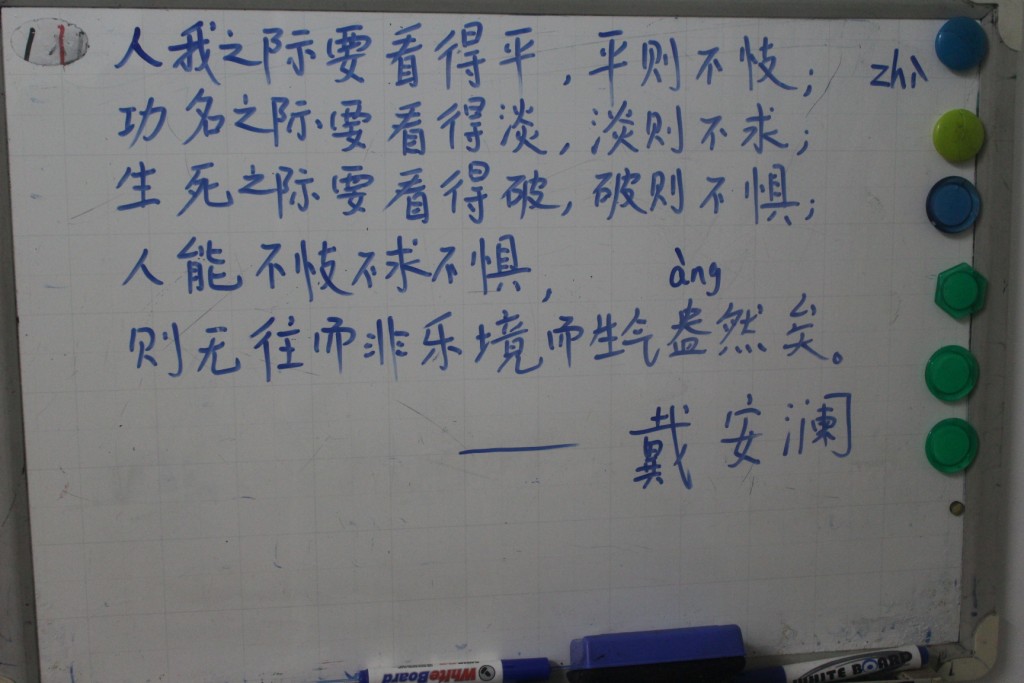 11
人我之际要看得平,平则不忮; zhì
功名之际要看得淡,淡则不求;
生死之际要看得破,破则不惧;
人能不忮不求不惧,
àng
则无往而非乐境而生气盎然矣。
—— 戴安澜
WhiteBoard
WHITE BOARD